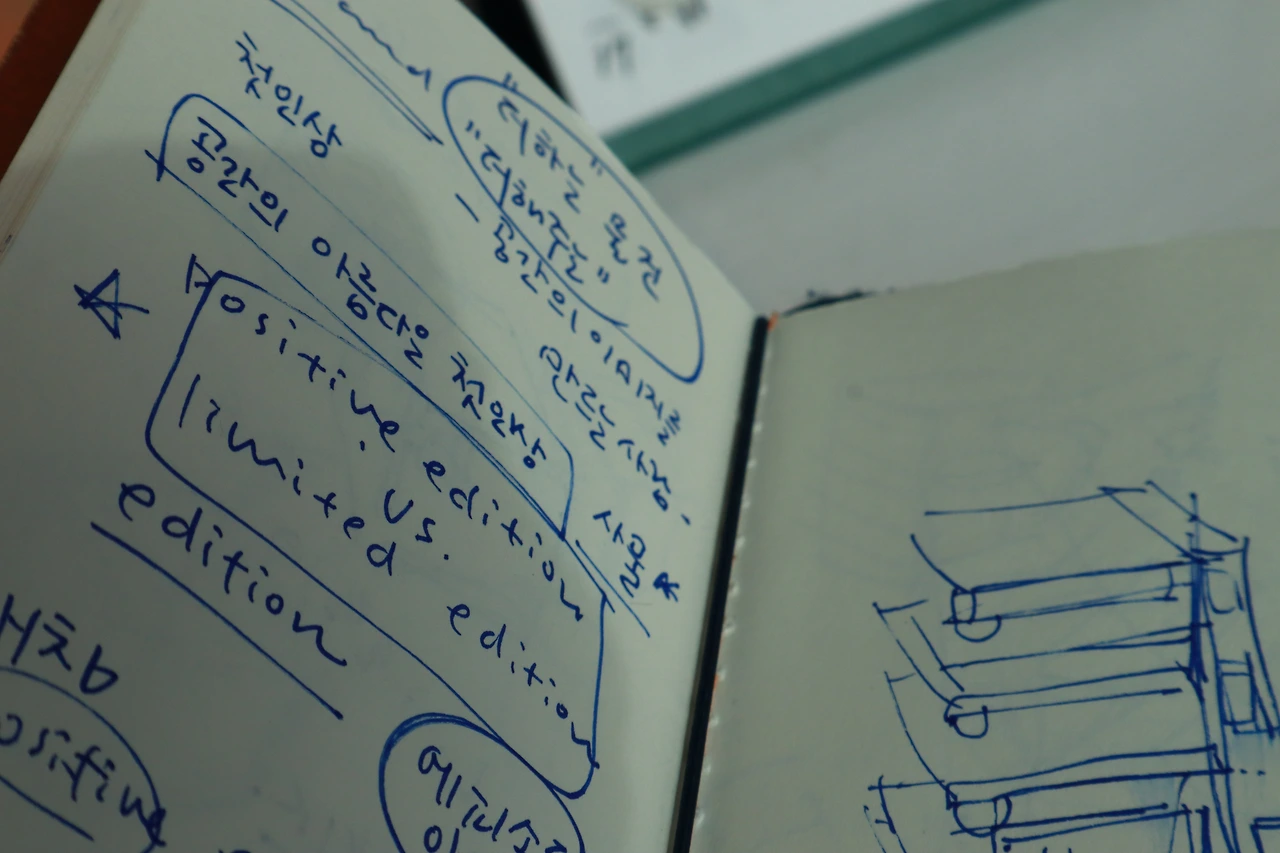 첫인상
공간의 아름다운 첫인상
"더하는" 물건
"더해주는"
- 공간의 이미지를
만드는 사람.
사물 *
Positive edition
vs.
limited edition
edition
ositive
에피소